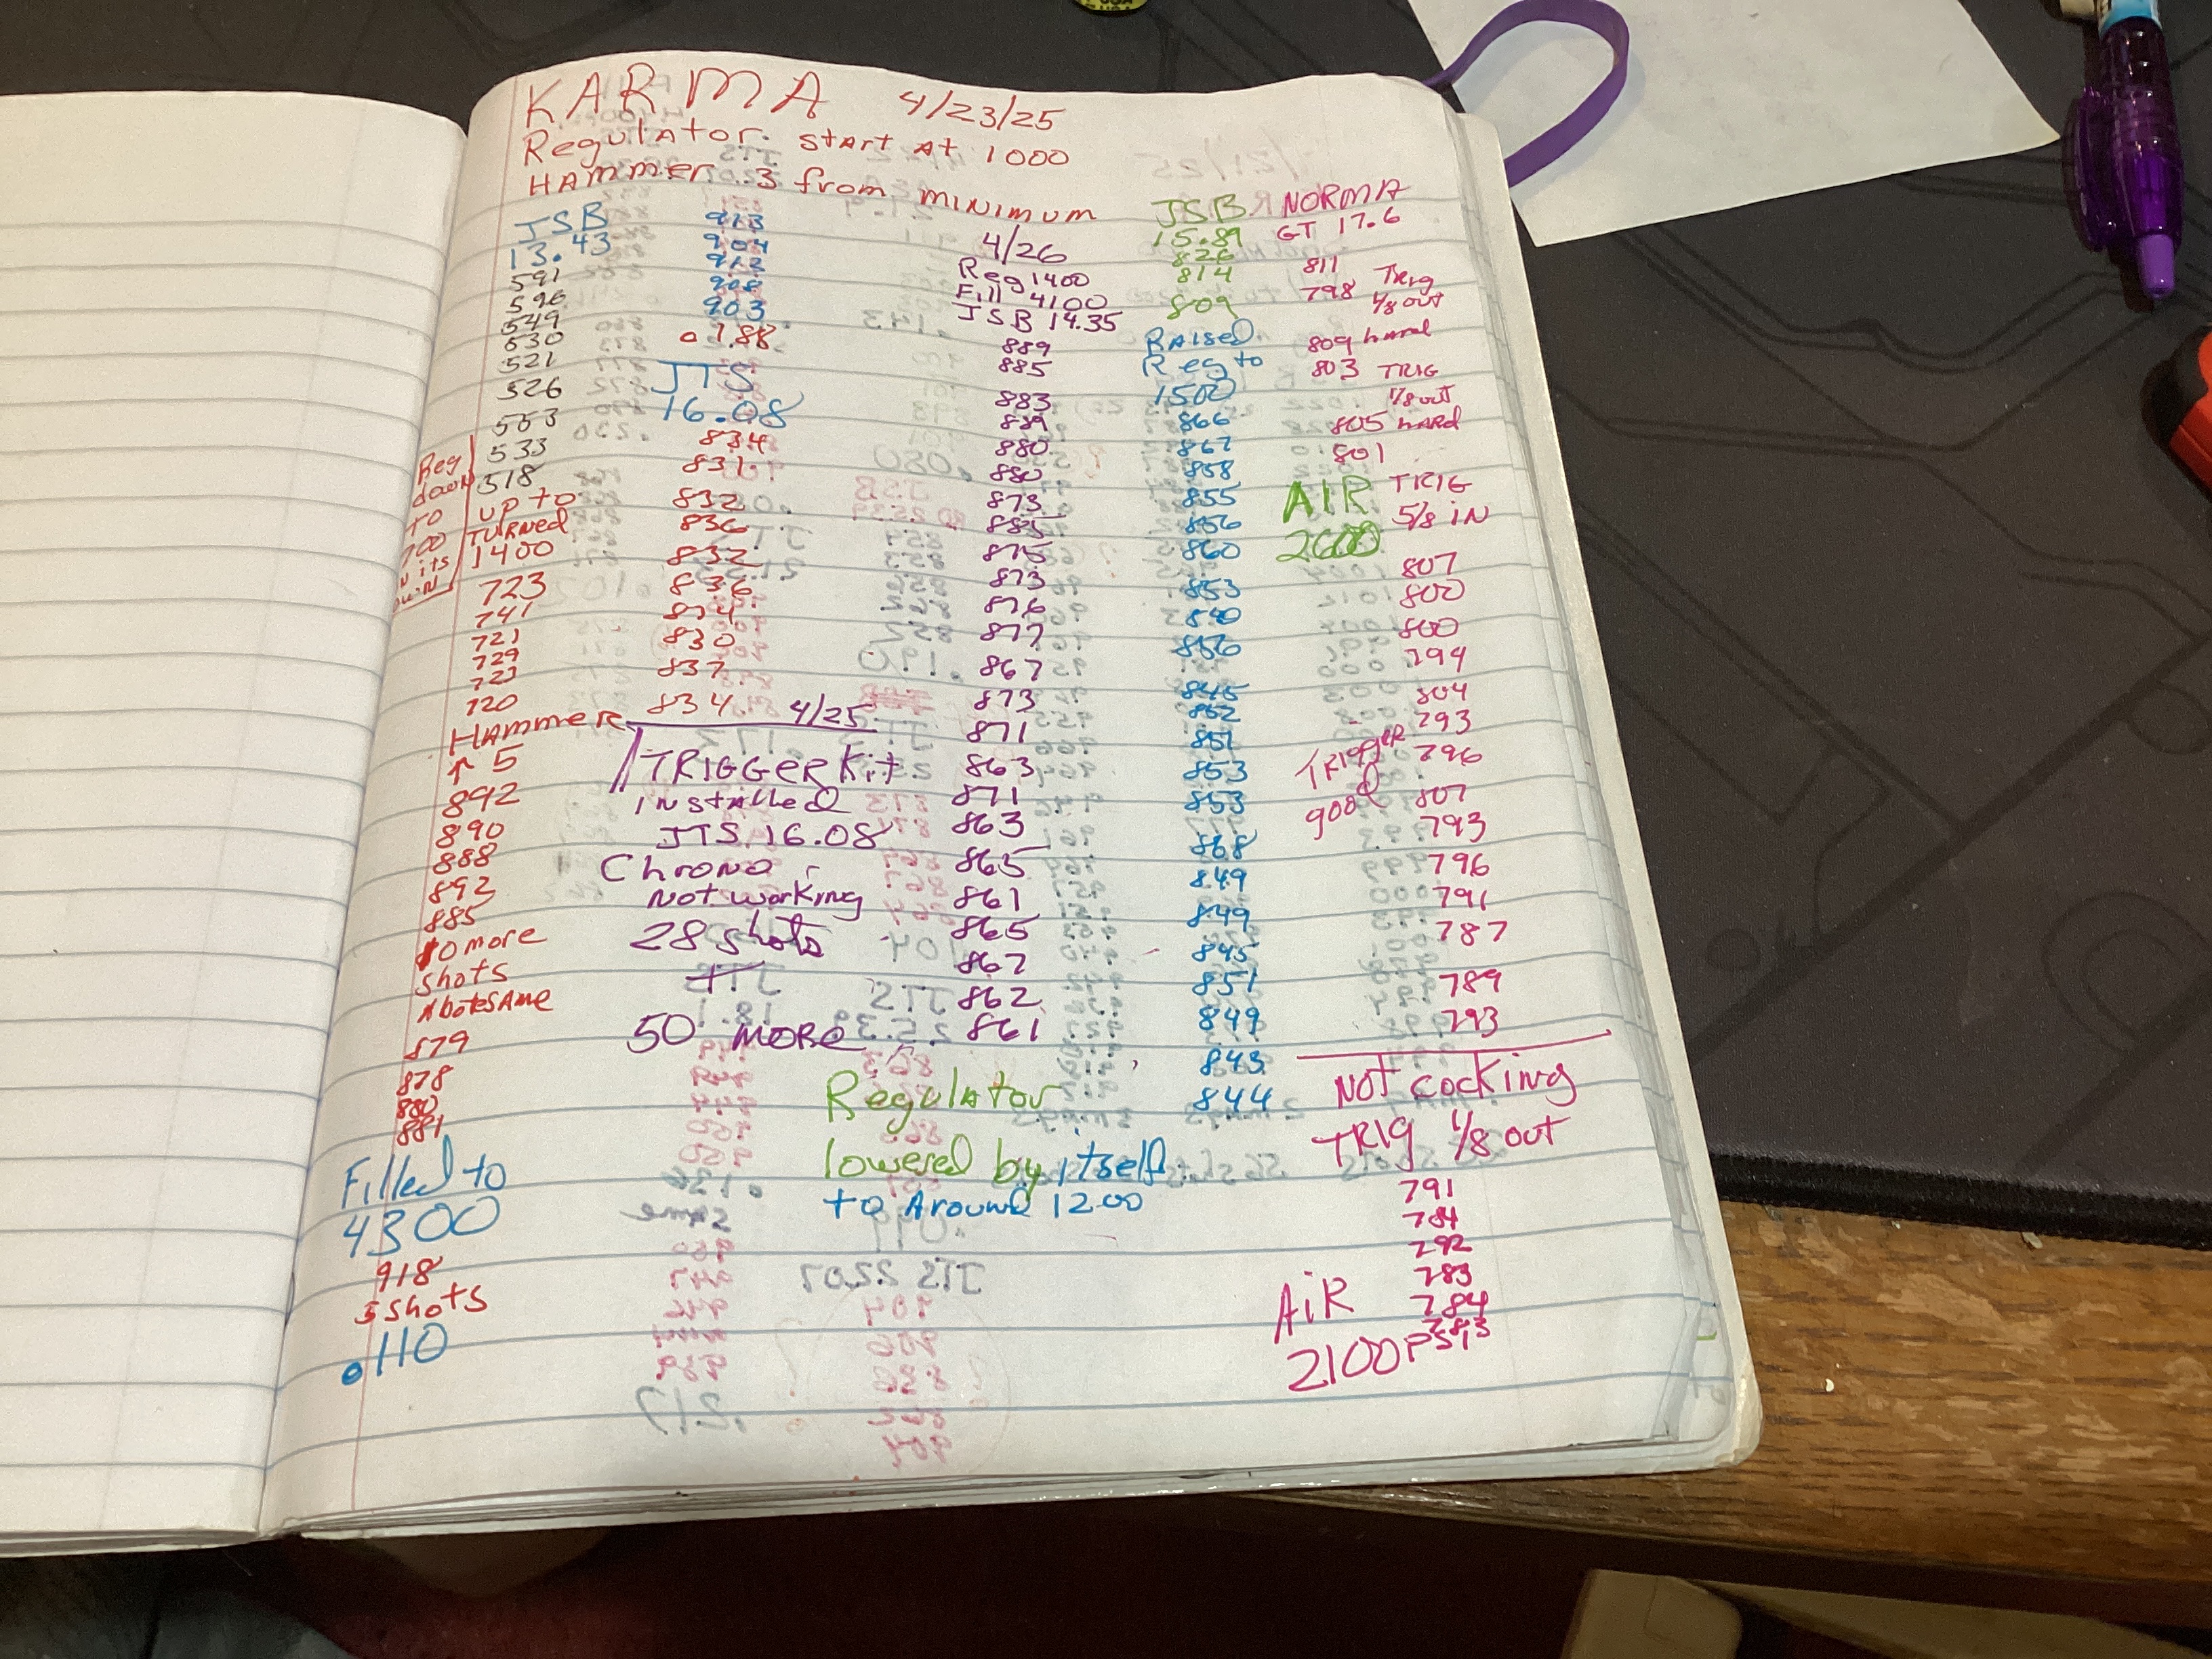 KARMA 4/23/25
Regulator start at 1000
Hammer 3 from minimum
JSB
13.43
591
596
549
530
521
526
553
533
518
Reg
down
TO
700
its
up to
TURNed
1400
723
741
721
729
723
720
Hammer
↑ 5
892
890
888
892
885
10 more
shots
Abotesame
879
878
880
881
Filled to
4300
918
5 shots
.110
913
904
912
908
903
0.188
JTS
16.08
834
831
832
836
832
836
834
830
837
834
4/25
TRIGGER Kit
installed
JTS 16.08
Chrono -
Not working
28 shots
50 more
4/26
Reg 1400
Fill 4100
JSB 14.35
889
885
883
889
880
880
873
885
875
873
876
877
867
873
871
863
871
863
865
861
865
867
862
861
Regulator
lowered by itself
to Around 1200
JSB
15.89
826
814
809
Raised
Reg to
1500
866
867
858
855
856
860
853
840
856
845
852
851
853
853
868
849
849
845
851
849
843
844
NORMA
GT 17.6
811
798 Trig
1/8 out
809 hard
803 TRIG
1/8 out
805 hard
801
AIR
2600
TRIG
5/8 IN
807
800
800
794
804
793
796
TRIGGER
good
807
793
796
791
787
789
793
NOT cocking
TRIG 1/8 out
791
784
792
783
784
783
AIR
2100 PSI